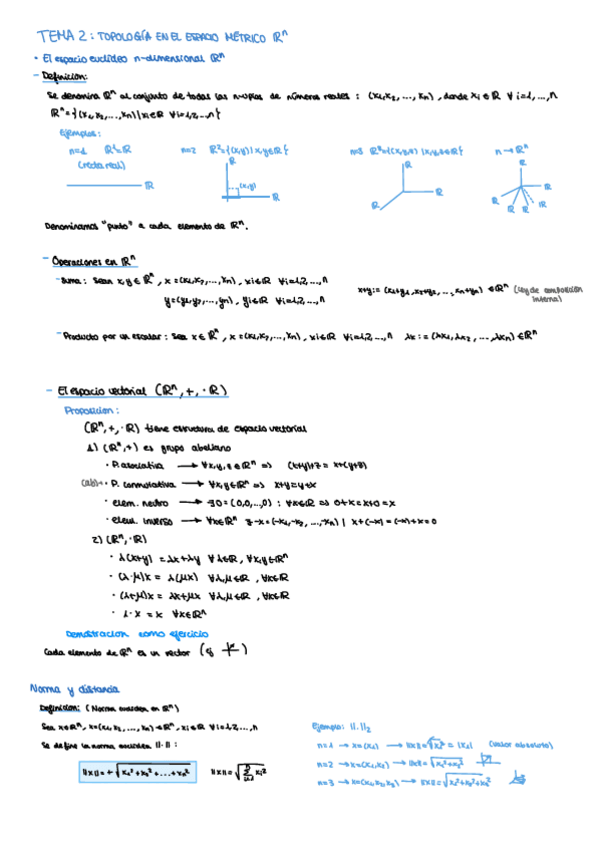 TEMA 2: TOPOLOGÍA EN EL ESPACIO MÉTRICO ℝⁿ
• El espacio euclídeo n-dimensional ℝⁿ
- Definición:
Se denomina ℝⁿ al conjunto de todas las n-uplas de números reales : (x₁,x₂, ..., xₙ) , donde xᵢ∈ℝ ∀ i=1,...,n
ℝⁿ={(x₁,x₂,...,xₙ)|xᵢ∈ℝ ∀i=1,2,...,n}
Ejemplos:
n=1 ℝ¹=ℝ
(recta real)
ℝ
n=2 ℝ²={(x,y)|x,y∈ℝ}
ℝ
(x,y)
ℝ
n=3 ℝ³={(x,y,z)|x,y,z∈ℝ}
ℝ
ℝ
ℝ
n → ℝⁿ
ℝ
ℝ
ℝ ℝ ℝ
Denominamos "punto" a cada elemento de ℝⁿ.
- Operaciones en ℝⁿ
- Suma: Sean x,y∈ℝⁿ , x=(x₁,x₂,...,xₙ) , xᵢ∈ℝ ∀i=1,2,...,n
y=(y₁,y₂,...,yₙ) , yᵢ∈ℝ ∀i=1,2,...,n
x+y:=(x₁+y₁,x₂+y₂,...,xₙ+yₙ) ∈ℝⁿ (Ley de composición interna)
- Producto por un escalar: Sea x∈ℝⁿ , x=(x₁,x₂,...,xₙ) , xᵢ∈ℝ ∀i=1,2,...,n λx:=(λx₁,λx₂,...,λxₙ)∈ℝⁿ
- El espacio vectorial (ℝⁿ,+,·ℝ)
Proposición:
(ℝⁿ,+,·ℝ) tiene estructura de espacio vectorial
1) (ℝⁿ,+) es grupo abeliano
• P. asociativa → ∀x,y,z∈ℝⁿ => (x+y)+z=x+(y+z)
(ab) • P. conmutativa → ∀x,y∈ℝⁿ => x+y=y+x
• elem. neutro → ∃0=(0,0,...,0) : ∀x∈ℝ => 0+x=x+0=x
• elem. inverso → ∀x∈ℝⁿ ∃-x=(-x₁,-x₂,...,-xₙ) | x+(-x)=(-x)+x=0
2) (ℝⁿ,·ℝ)
• λ(x+y)=λx+λy ∀λ∈ℝ, ∀x,y∈ℝⁿ
• (λ·μ)x=λ(μx) ∀λ,μ∈ℝ, ∀x∈ℝ
• (λ+μ)x=λx+μx ∀λ,μ∈ℝ, ∀x∈ℝ
• 1·x=x ∀x∈ℝⁿ
Demostración como ejercicio
Cada elemento de ℝⁿ es un vector
Norma y distancia
Definición: (Norma euclídea en ℝⁿ)
Sea x∈ℝⁿ, x=(x₁,x₂,...,xₙ)∈ℝⁿ, xᵢ∈ℝ ∀i=1,2,...,n
Se define la norma euclídea ||·|| :
||x||=+√x₁²+x₂²+...+xₙ²
Ejemplo: ||·||₂
n=1 → x=(x₁) → ||x||=√x₁²=|x₁| (valor absoluto)
n=2 → x=(x₁,x₂) → ||x||=√x₁²+x₂²
n=3 → x=(x₁,x₂,x₃) → ||x||=√x₁²+x₂²+x₃²